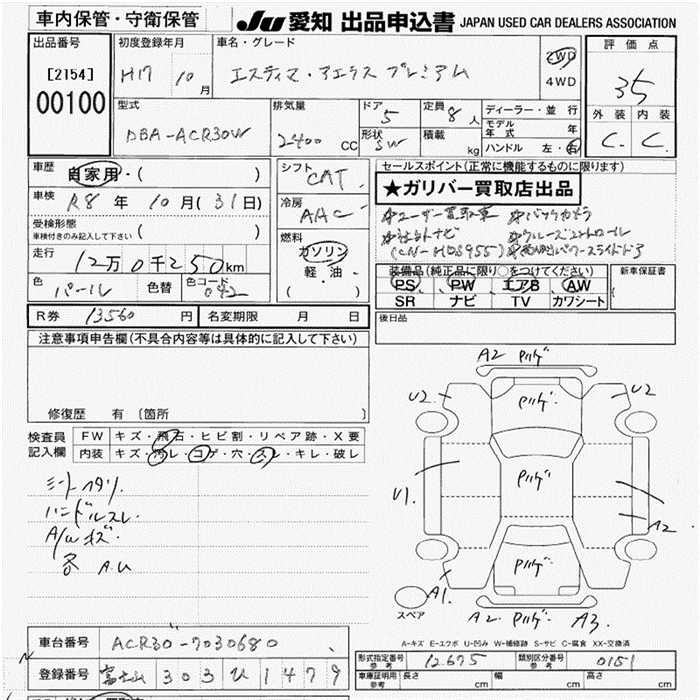 車内保管・守衛保管
JU 愛知 出品申込書 JAPAN USED CAR DEALERS ASSOCIATION
出品番号
[2154]
00100
初度登録年月
H17 10月
車名・グレード
エスティマ・アエラス プレミアム
2WD
4WD
評価点
35
外装 内装
C. C.
型式
DBA-ACR30W
排気量
2400 CC
ドア 5
形状 SW
定員 8人
積載 kg
ディーラー・並行
モデル年式 年
ハンドル 左・右
車歴
自家用・( )
車検
R8年 10月(31日)
受検形態
車検付きのみ記入して下さい ( )
走行
12万0千250km
色 パール 色替 色コード 042
シフト CAT
冷房 AAC
燃料
ガソリン
軽・油
( )
セールスポイント(正常に機能するものに限ります)
★ガリバー買取店出品
ユーザー買取車 バックカメラ
社外ナビ クルーズコントロール
(CN-HDS955) 両側パワースライドドア
装備品(純正品に限り○をつけてください)
PS PW エアB AW
SR ナビ TV カワシート
新車保証書
後日品
R券 13560円 名変期限 月 日
注意事項申告欄(不具合内容等は具体的に記入して下さい)
修復歴 有 〔箇所 〕
検査員記入欄
FW キズ・飛石・ヒビ割・リペア跡・X要
内装 キズ・汚レ・コゲ・穴・スレ・キレ・破レ
シートヘタリ
ハンドルスレ
A/wキズ
各 A.U
A2 Pハゲ
U2 Pハゲ U2
Pハゲ
U1 A2
Pハゲ
A1
A2 Pハゲ A3
スペア
A-キズ E-エクボ U-凹み W-補修跡 S-サビ C-腐食 XX-交換済
車台番号 ACR30-7030680
登録番号 富士山 303 ひ 1479
形式指定番号 参考 12675 類別区分番号 参考 0151
車庫証明用参考 長さ cm 幅 cm 高さ cm